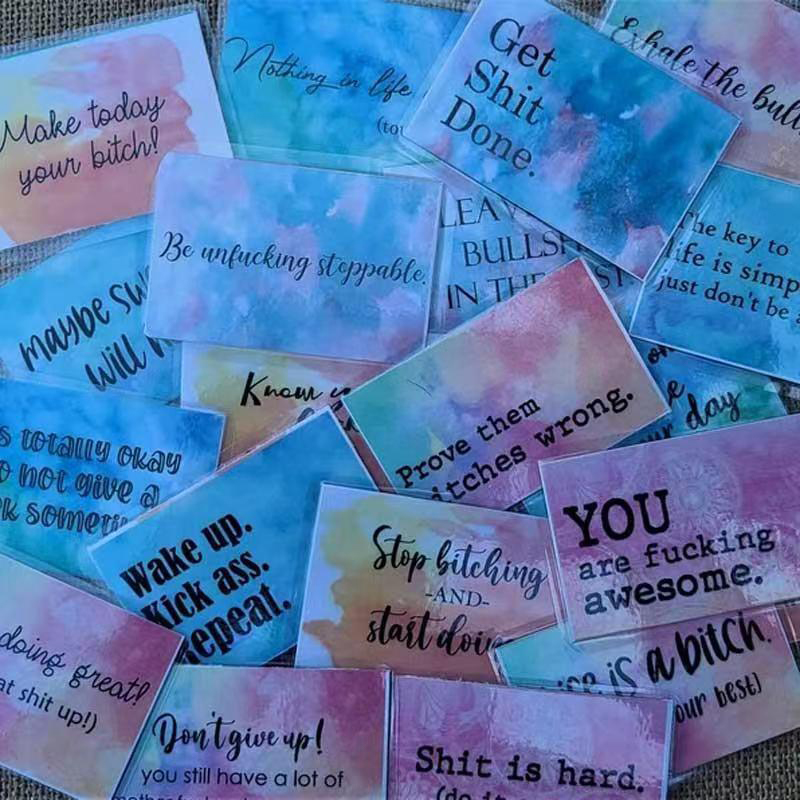 Make today
your bitch!
Nothing in life
(tou
Get
Shit
Done.
Exhale the bull
Be unfucking stoppable.
LEAV
BULLSH
IN THE
ST.
The key to
life is simp
just don't be
maybe sw
will
Know y
Prove them
itches wrong.
ur day
s totally okay
o not give a
k someti
Wake up.
Kick ass.
Repeat.
Stop bitching
-AND-
start doin
YOU
are fucking
awesome.
doing great!
at shit up!)
is a bitch.
our best)
Don't give up!
you still have a lot of
Shit is hard.
(do it